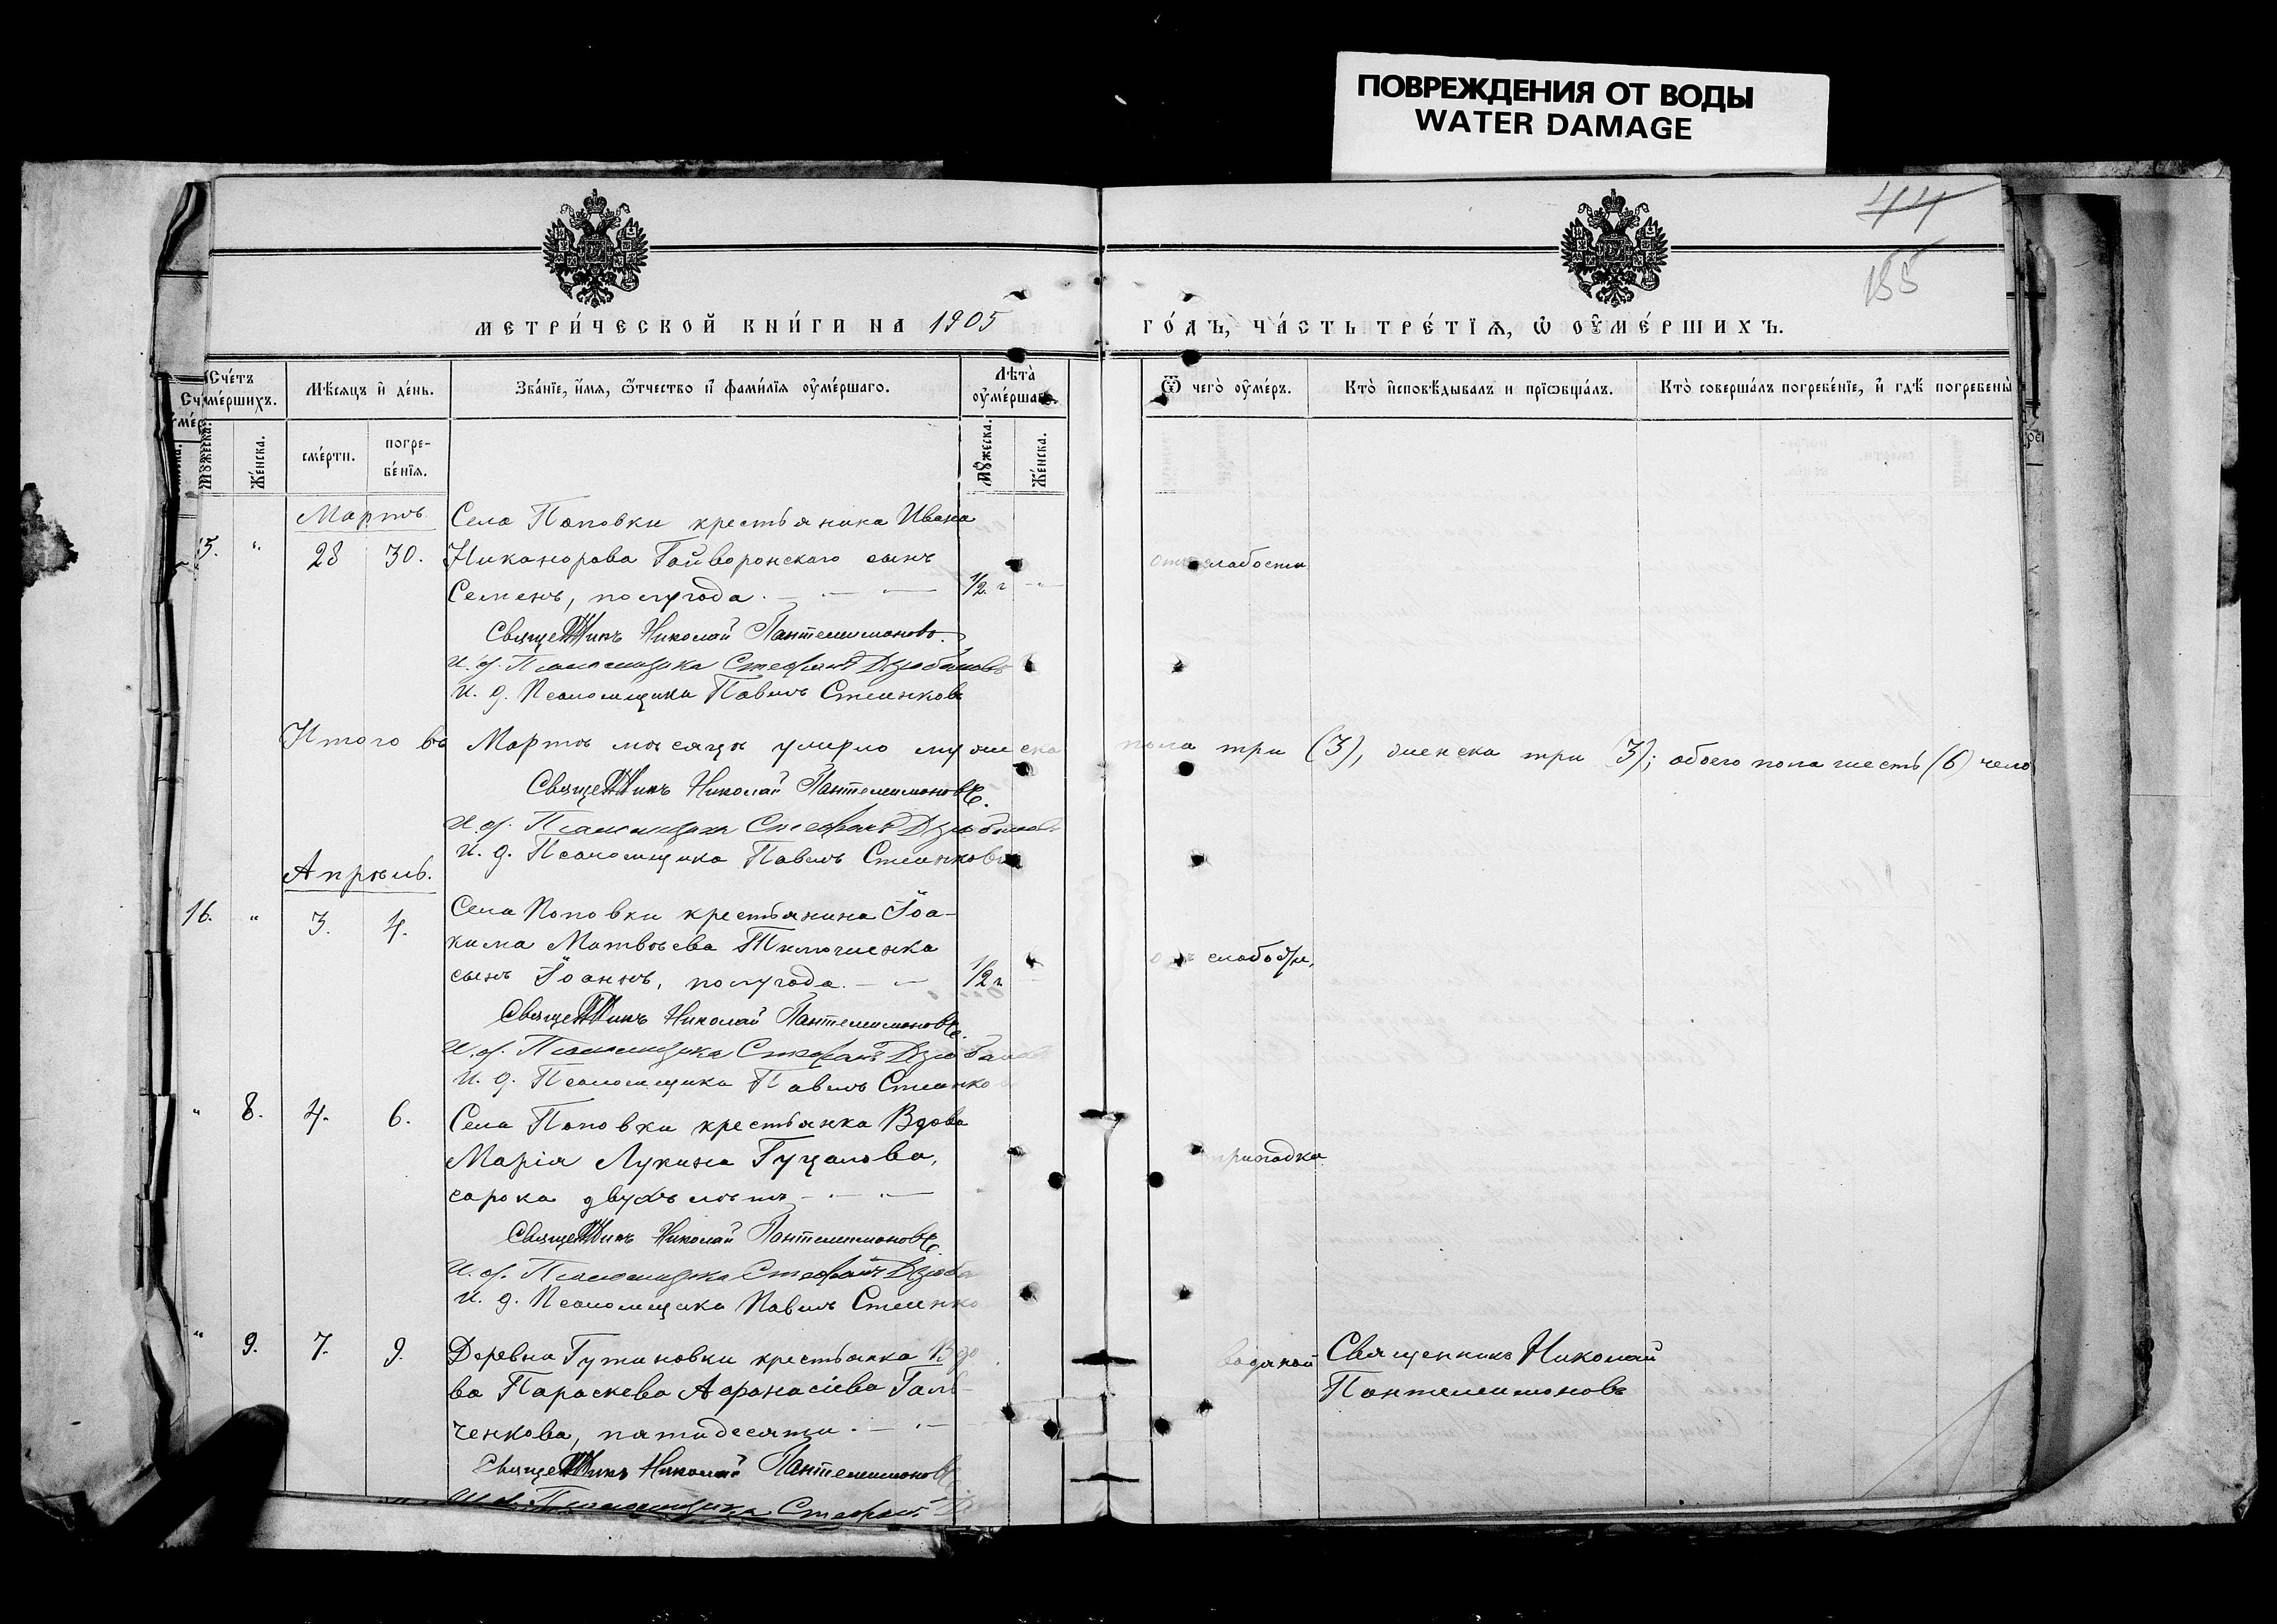 ПОВРЕЖДЕНИЯ ОТ ВОДЫ
WATER DAMAGE
44
155
МЕТРИ́ЧЕСКОЙ КНИ́ГИ НА 1905
ГО́ДЪ, ЧА́СТЬ ТРЕ́ТЇѦ, Ѡ҆ ОУ҆МЕ́РШИХЪ.
Сче́тъ
оу҆ме́ршихъ.
Мꙋ́жеска.
Же́нска.
Мѣ́сяцъ и҆ де́нь.
сме́рти.
погре-
бе́нїѧ.
Зва́нїе, и҆́мѧ, ѻ҆́тчество и҆ фами́лїѧ оу҆ме́ршаго.
Лѣ́та
оу҆ме́ршаго.
Мꙋ́жеска.
Же́нска.
Ѿ чегѡ̀ оу҆ме́ръ.
Кто̀ и҆сповѣ́дывалъ и҆ прїѡбща́лъ.
Кто̀ соверша́лъ погребе́нїе, и҆ гдѣ̀ погребены̀
Мартъ
Села Поповки крестьянина Ивана
15. " 28 30. Никанорова Гайворонскаго сынъ
Семенъ, полугода. 1/2 г
отъ слабости
Священникъ Николай Пантелеимоновъ.
И. д. Псаломщика Стефанъ Дзюбановъ
И. д. Псаломщика Павелъ Стеенковъ
Итого въ Мартѣ мѣсяцѣ умерло мужеска пола три (3), женска три (3); обоего пола шесть (6) чело
Священникъ Николай Пантелеимоновъ.
И. д. Псаломщика Стефанъ Дзюбановъ
И. д. Псаломщика Павелъ Стеенковъ
Апрѣль.
16. " 3. 4. Села Поповки крестьянина Іоа-
кима Матвѣева
сынъ Іоаннъ, полугода. 1/2 г
слабости,
Священникъ Николай Пантелеимоновъ.
И. д. Псаломщика Стефанъ Дзюбанов
И. д. Псаломщика Павелъ Стеенков
" 8. 4. 6. Села Поповки крестьянка Вдова
Марія Лукина Гуцалова,
сорока двухъ лѣтъ
припадка.
Священникъ Николай Пантелеимоновъ.
И. д. Псаломщика Стефанъ Дзюба
И. д. Псаломщика Павелъ Стеенко
" 9. 7. 9. Деревни Гутиновки крестьянка Вдо
ва Параскева Аѳанасіева Галь-
ченкова, пятидесяти.
водяной
Священникъ Николай
Пантелеимоновъ
Священникъ Николай Пантелеимонов
И. д. Псаломщика Стефанъ